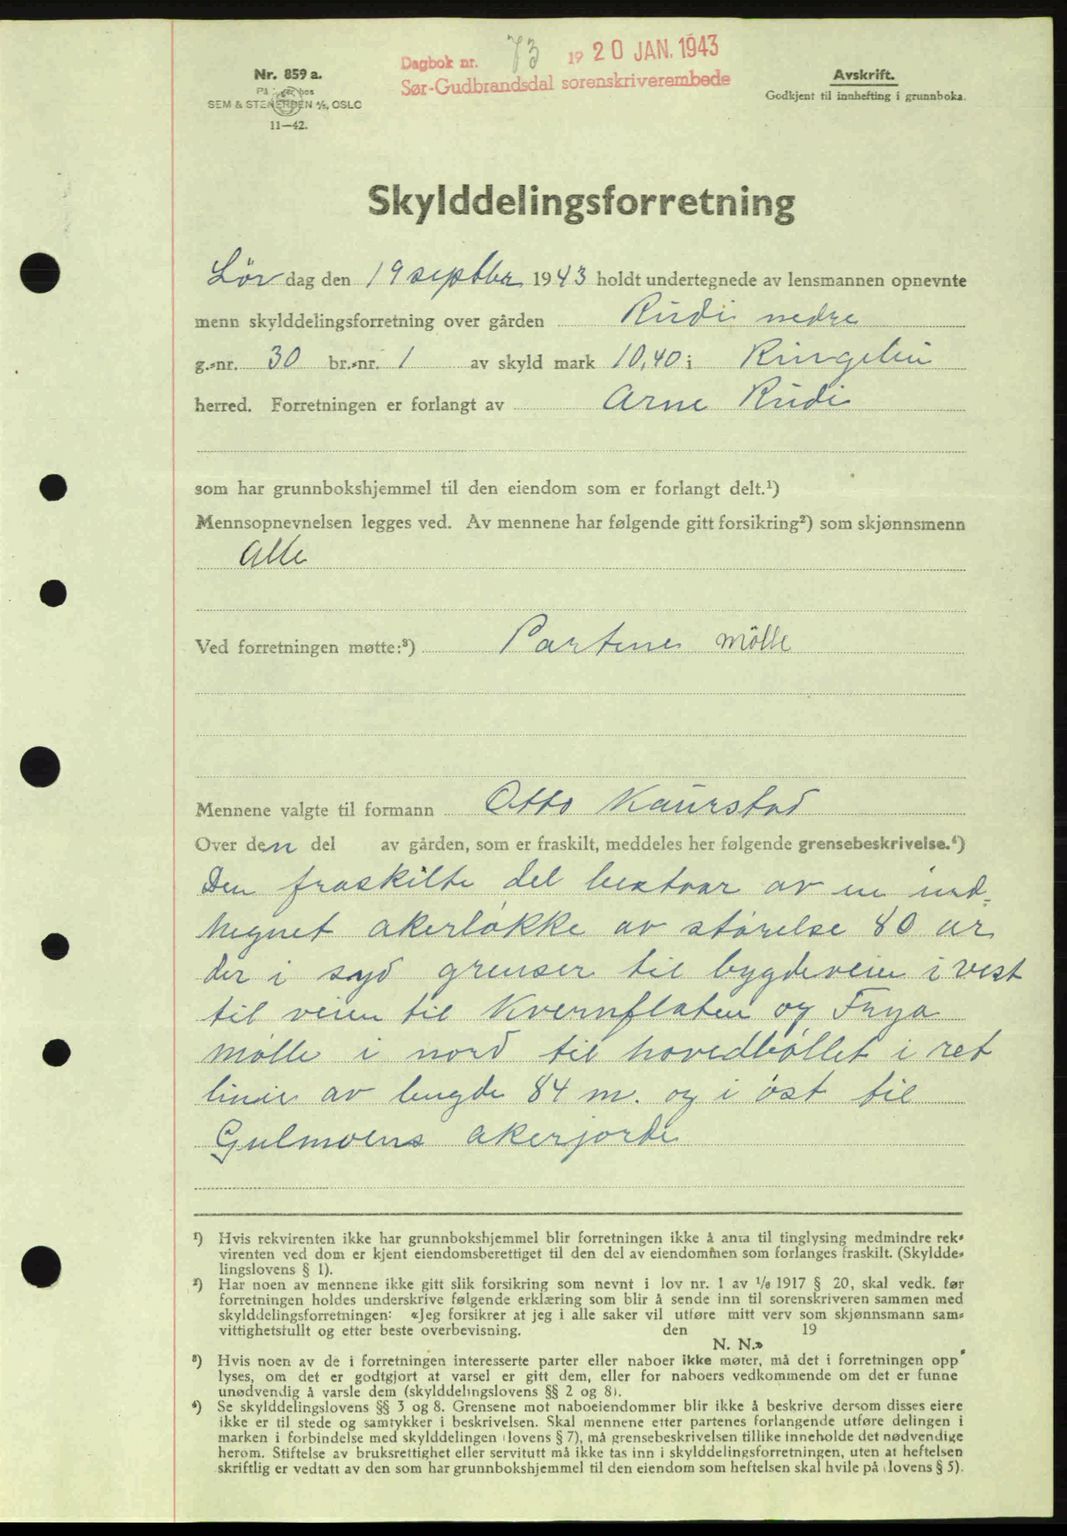 Dagbok nr. 73 19 20 JAN. 1943
Sør-Gudbrandsdal sorenskriverembede
Nr. 859 a.
SEM & STENERSEN A/S, OSLO
11—42.
Avskrift.
Godkjent til innhefting i grunnboka.
Skylddelingsforretning
Lör dag den 19 septbr 1943 holdt undertegnede av lensmannen opnevnte
menn skylddelingsforretning over gården Rudi nedre
g.-nr. 30 br.-nr. 1 av skyld mark 10,40 i Ringebu
herred. Forretningen er forlangt av Arne Rudi
som har grunnbokshjemmel til den eiendom som er forlangt delt.¹)
Mennsopnevnelsen legges ved. Av mennene har følgende gitt forsikring²) som skjønnsmenn
Alle
Ved forretningen møtte:³) Partene mölle
Mennene valgte til formann Otto Kaurstad
Over den del av gården, som er fraskilt, meddeles her følgende grensebeskrivelse.⁴)
Den fraskilte del bestaar av en ind-
hegnet akerløkke av størelse 80 ar
der i syd grenser til bygdeveien i vest
til veien til Kvernflaten og Frya
mølle i nord til hovedbøllet i ret
linie av lengde 84 m. og i øst til
Gulmoens akerjorde
¹) Hvis rekvirenten ikke har grunnbokshjemmel blir forretningen ikke å anta til tinglysing medmindre rek-
virenten ved dom er kjent eiendomsberettiget til den del av eiendommen som forlanges fraskilt. (Skyldde-
lingslovens § 1).
²) Har noen av mennene ikke gitt slik forsikring som nevnt i lov nr. 1 av 1/6 1917 § 20, skal vedk. før
forretningen holdes underskrive følgende erklæring som blir å sende inn til sorenskriveren sammen med
skylddelingsforretningen: «Jeg forsikrer at jeg i alle saker vil utføre mitt verv som skjønnsmann sam-
vittighetsfullt og etter beste overbevisning. den 19
N. N.»
³) Hvis noen av de i forretningen interesserte parter eller naboer ikke møter, må det i forretningen opp-
lyses, om det er godtgjort at varsel er gitt dem, eller for naboers vedkommende om det er funne
unødvendig å varsle dem (skylddelingslovens §§ 2 og 8).
⁴) Se skylddelingslovens §§ 3 og 8. Grensene mot naboeiendommer blir ikke å beskrive dersom disses eiere
ikke er til stede og samtykker i beskrivelsen. Skal mennene etter partenes forlangende utføre delingen i
marken i forbindelse med skylddelingen (lovens § 7), må grensebeskrivelsen tillike inneholde det nødvendige
herom. Stiftelse av bruksrettighet eller servitutt må ikke tas inn i skylddelingsforretningen, uten at heftelsen
skriftlig er vedtatt av den som har grunnbokshjemmel til den eiendom som heftelsen skal hvile på (lovens § 5).